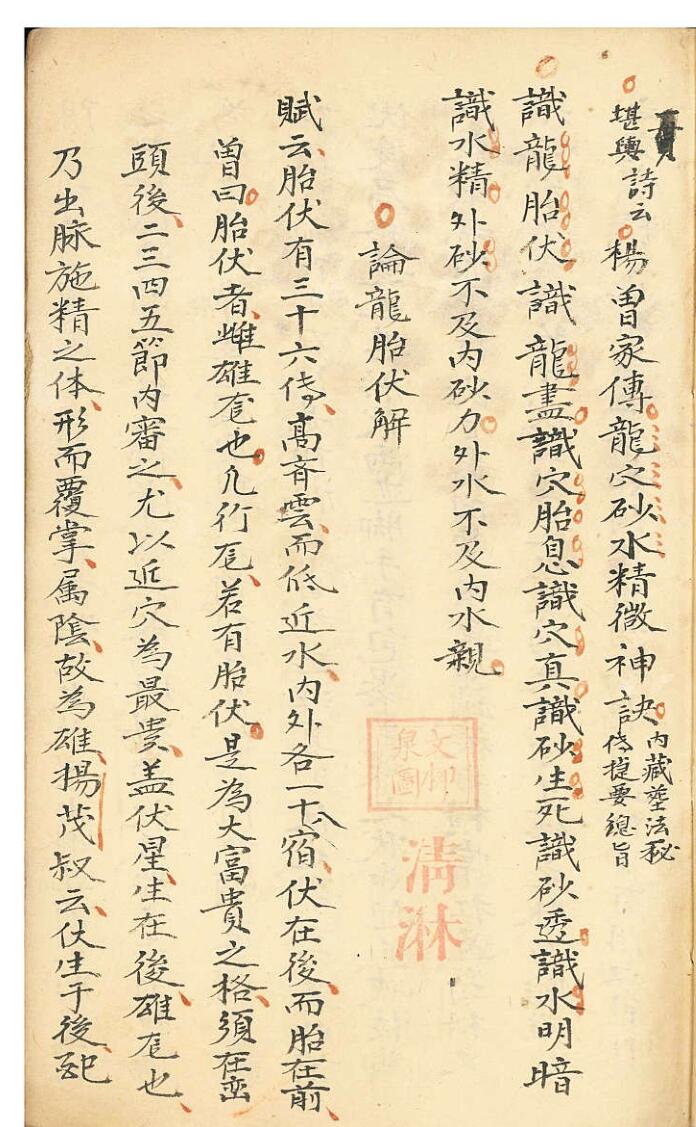 堪輿詩云楊曾家傳龍穴砂水精微神訣內藏塋法秘
傳捷要總旨
識龍胎伏識龍盡識穴胎息識穴真識砂生死識砂透識水明暗
識水精外砂不及內砂力外水不及內水親
論龍胎伏解
賦云胎伏有三十六傳高齊雲而低近水內外各一十八宿伏在後而胎在前
曾曰胎伏者雌雄也凡行若有胎伏是為大富貴之格須在巒
頭後二三四五節內審之尤以近穴為最貴盖伏星生在後雄也
乃出脉施精之体形而覆掌属陰故為雄楊茂叔云伏生于後
文柳泉圖
清淋